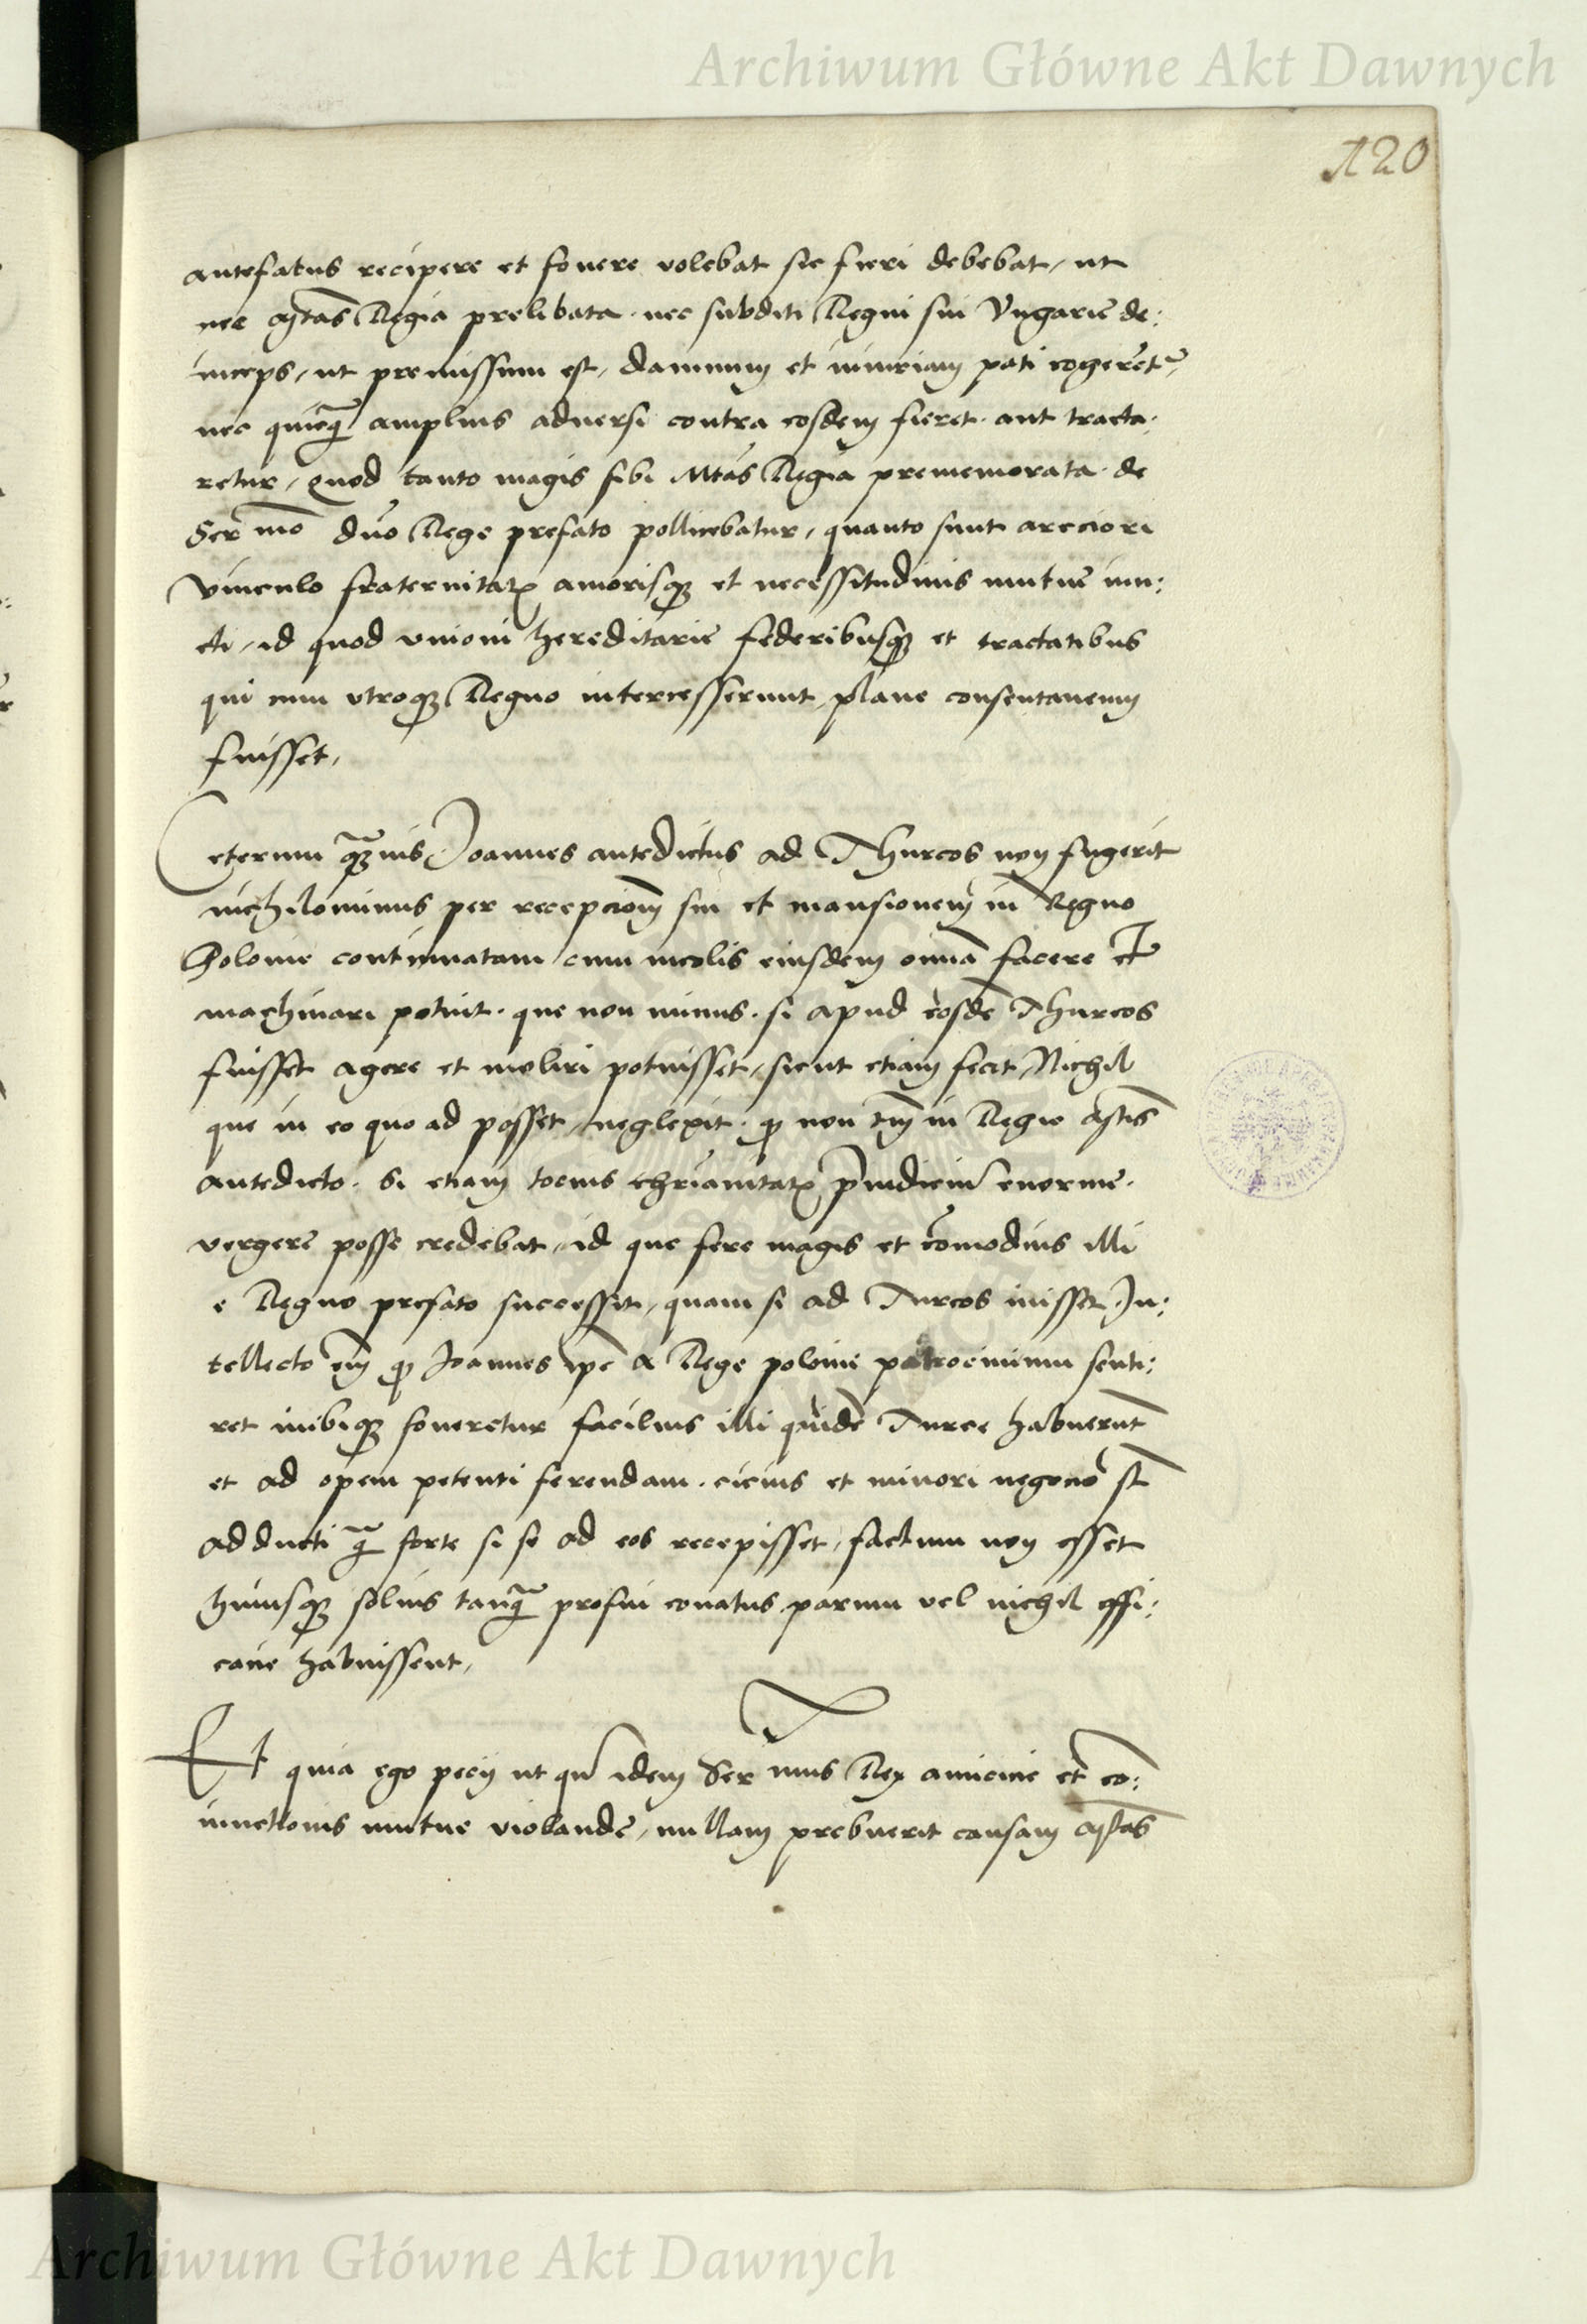 Archiwum Główne Akt Dawnych
120
antefatus recipere et fovere volebat sic fieri debebat, ut
nec Mtas Regia prelibata. nec subditi Regni sui Vngarie de:
inceps, ut premissum est, damnum et iniuriam pati cogeretr,
nec quicq̃ amplius adversi contra eosdem fieret. aut tracta:
retur, Quod tanto magis sibi Mtas Regia prememorata. de
Sermo dno Rege prefato pollicebatur, quanto sunt arcciori
vinculo fraternitatis amorisq; et necessitudinis mutue iun:
cti, id quod vnioni hereditarie federibusq; et tractatibus
qui cum vtroq; Regno intercesserunt, plane consentaneum
fuisset,
Ceterum q̃uis Joannes antedictus ad Thurcos non fugerit
nichilominus per recepcionem sui et mansionem in Regno
Polonie continuatam cum incolis eiusdem omnia facere et
machinari potuit. que non minus. si apud eosdē Thurcos
fuisset agere et moliri potuisset, sicut etiam fecit, Nichil
que in eo quo ad posset, neglexit. q non tm in Regie Mtis
antedicte. Sz etiam tocius chrianitatis p̄iudicium enorme.
vergere posse credebat, id que fere magis et cōmodius illi
e Regno prefato successit, quam si ad Turcos iuisset, In:
tellecto em q Joannes ipe a Rege polonie patrocinium senti:
ret inibiq; foveretur facilius illi quidē Turce habuerunt
et ad opem petenti ferendam. cicius et minori negocio st
adducti q̃ forte si se ad eos recepisset, factum non esset
huiusq; solius tanq̃ profui conatus parum vel nichil effi:
cacie habuissent,
Et quia ego pecij ut qn idem Sermus Rex amicicie et co:
iunctionis mutue violande, nullam prebuerit causam Mtas
Archiwum Główne Akt Dawnych